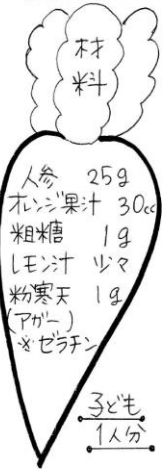 材
料
人参 25g
オレンジ果汁 30cc
粗糖 1g
レモン汁 少々
粉寒天 1g
(アガー)
※ゼラチン
子ども
1人分